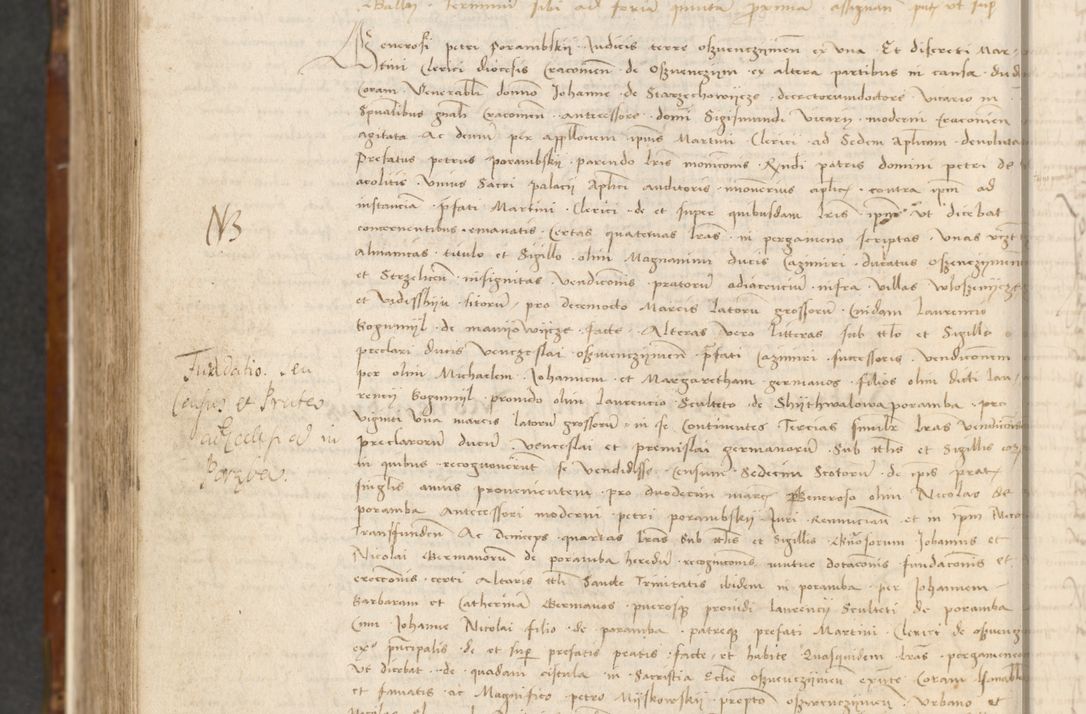 Ballij terminum sibi ad feriam quinta proxima assignari ut sup
Generosi petri porambskij Iudicis terre oszvenczimen ex una Et discreti Mar-
tini Clerici diocesis Cracovien de Oszvenczim ex altera partibus in causa dud
Coram Venerabili domino Johanne de Starzechowijcze decretorum doctore Vicario in
Spualibus gnali Cracovien antecessore domi Sigismundi Vicarij moderni Cracovien
agitata Ac demum per appellonem ipsius Martini Clerici ad Sedem Aplicam devoluta
Prefatus petrus porambskij parendo lris monicionis Rndi patris domini petri de
acolitis Unius Sacri palacii Aplici auditoris contra ipm ad
instanciam pfati Martini Clerici de et super quibusdam lris ut dicebat
concernentibus emanatis Certas quatuas lras in pergameno scriptas Unas
Almanicas titulo et Sigillo olim Magnanimi ducis Cazimiri ducatus Oszvenczimen
et Strzelicen insignitas Vendicionis pratorum adiacencium infra Villas Wloszenijcze
et sitorum pro decemocto Marcis latorum grossorum Cuidam laurencio
Bogumijl de manijowijcze facte Alteras Vero litteras sub ttlo et Sigillo
preclari ducis Venczeslai oszvenczimen pfati Cazimiri successoris Vendicionem
per olim Michaelem Johannem et Margaretham germanos filios olim dicti lau-
rencij Bogumijl provido olim laurencio Sculteto de poramba pro
viginti una marcis latorum grossorum in se Continentes Tercias similr lras Vendicionis
preclarorum ducum Venceslai et premislai germanorum Sub ttlis et Sigillis
in quibus recognoverunt se Vendidisse Censum Sedecim Scotorum de ipis prat
singlis annis provenientem pro duodecim marc Generoso olim Nicolao de
poramba Antecessori moderni petri porambskij Iuri et in ipm Nicol
transfunden Ac deniceps quartas lras Sub ttlis et Sigillis Johannis et
Nicolai Germanorum de poramba heredum recognicionis dotacionis fundacionis et
ereccionis certi Altaris ttli Sancte Trinitatis ibidem in poramba per Johannem
Barbaram et Catherinam Germanos puerosque providi laurencij Sculteti de poramba
Cum Johanne Nicolai filio de poramba patreque prefati Martini Clerici de oszvencz
principalis de et sup prefatis pratis facte et habite Quasquidem lras pergameneas
Ut dicebat de quadam cistula in Sacristia Ecclie oszvenczimen Coram
et famatis ac Magnifico petro Mijskowskij oszvenczimen Urbano et
NB
Fundatio seu
Census et Prates
ad Ecclesiad in
Poraba.